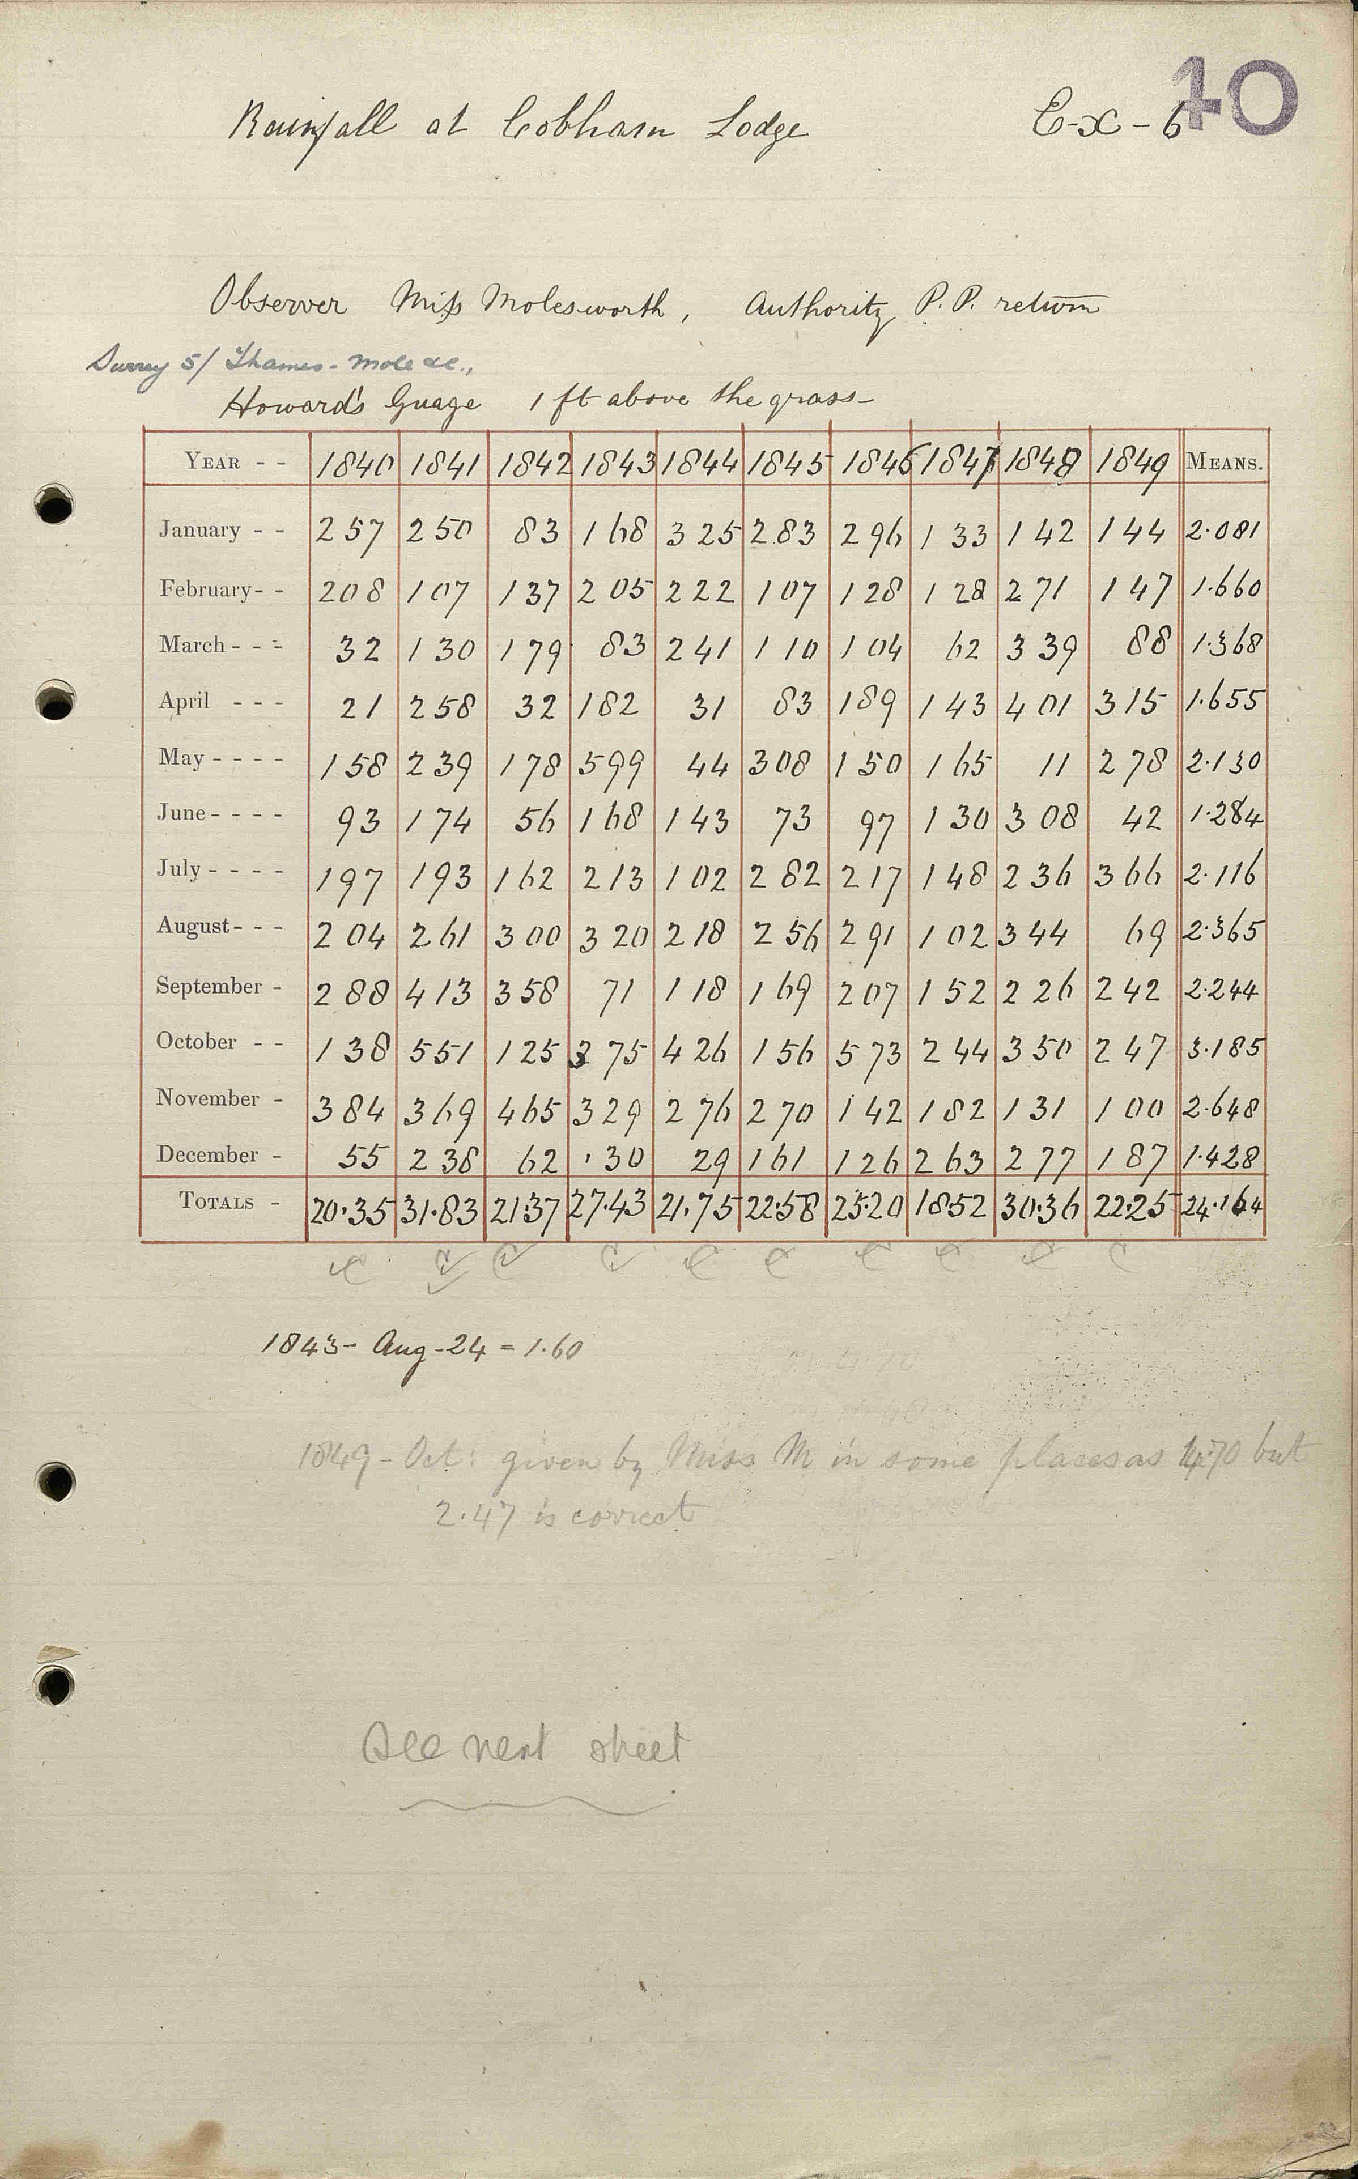 40
Rainfall at Cobham Lodge E-x-6
Observer Miss Molesworth, Authority P.P. return
Surrey 5/ Thames - Mole &c.,
Howard's Guage 1 ft above the grass
YEAR - - 1840 1841 1842 1843 1844 1845 1846 1847 1848 1849 MEANS.
January - - 2 57 2 50 83 1 68 3 25 2 83 2 96 1 33 1 42 1 44 2.081
February - - 2 08 1 07 1 37 2 05 2 22 1 07 1 28 1 28 2 71 1 47 1.660
March - - - 32 1 30 1 79 83 2 41 1 10 1 04 62 3 39 88 1.368
April - - - 21 2 58 32 1 82 31 83 1 89 1 43 4 01 3 15 1.655
May - - - - 1 58 2 39 1 78 5 99 44 3 08 1 50 1 65 11 2 78 2.130
June - - - - 93 1 74 56 1 68 1 43 73 97 1 30 3 08 42 1.284
July - - - - 1 97 1 93 1 62 2 13 1 02 2 82 2 17 1 48 2 36 3 66 2.116
August - - - 2 04 2 61 3 00 3 20 2 18 2 56 2 91 1 02 3 44 69 2.365
September - 2 88 4 13 3 58 71 1 18 1 69 2 07 1 52 2 26 2 42 2.244
October - - 1 38 5 51 1 25 3 75 4 26 1 56 5 73 2 44 3 50 2 47 3.185
November - 3 84 3 69 4 65 3 29 2 76 2 70 1 42 1 82 1 31 1 00 2.648
December - 55 2 38 62 .30 29 1 61 1 26 2 63 2 77 1 87 1.428
TOTALS - 20.35 31.83 21.37 27.43 21.75 22.58 25.20 18.52 30.36 22.25 24.164
1843 - Aug - 24 = 1.60
1849 - Oct: given by Miss M in some places as 4.70 but
2.47 is correct
See next sheet